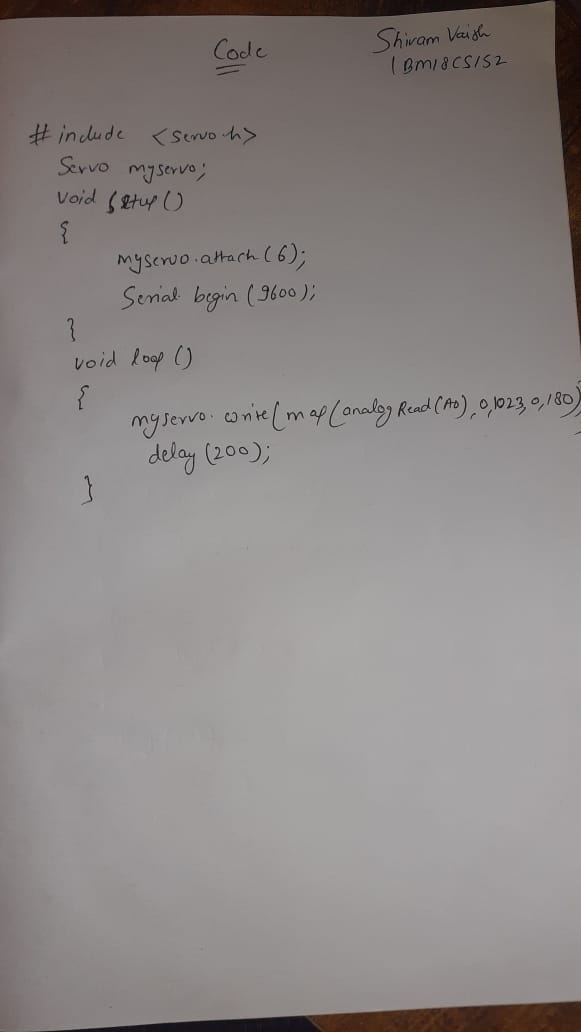 Code
Shivam Vaish
1BM18CS152
# include <servo.h>
Servo myservo;
void setup ()
{
myservo.attach (6);
Serial. begin (9600);
}
void loop ()
{
myservo. write (map (analog Read (A0), 0,1023,0,180)
delay (200);
}